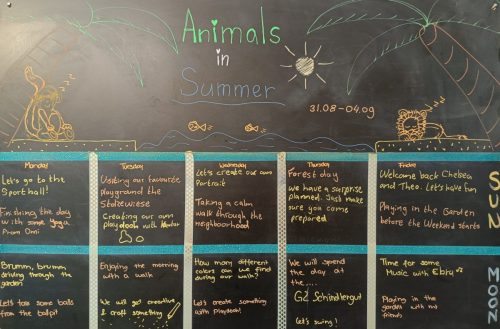 Animals
in
Summer
31.08-04.09
zzz
zzz
Monday
Let's go to the
Sporthall!
Finishing the day
with some yoga
From Omi
Tuesday
Visiting our favourite
playground the
Stolzewiese
Creating our own
playdooh with
Wednesday
Let's create our own
Portrait
Taking a calm
walk through the
neighbourhood
Thursday
Forest day
we have a surprise
planned. Just make
sure you come
prepared
Friday
Welcome back Chelsea
and Theo. Let's have fun
Playing in the Garden
before the Weekend starts
SUN
Brumm, brumm,
driving through the
garden
Lets toss some balls
from the ballpit
Enjoying the morning
with a walk
We will get creative
& craft something
How many different
colors can we find
during our walk?
Let's create something
with Playdooh!
We will spend
the day at
the....
GZ Schindlergut
Let's swing!
Time for some
Music with Ebby
Playing in the
garden with my
friends
MOON